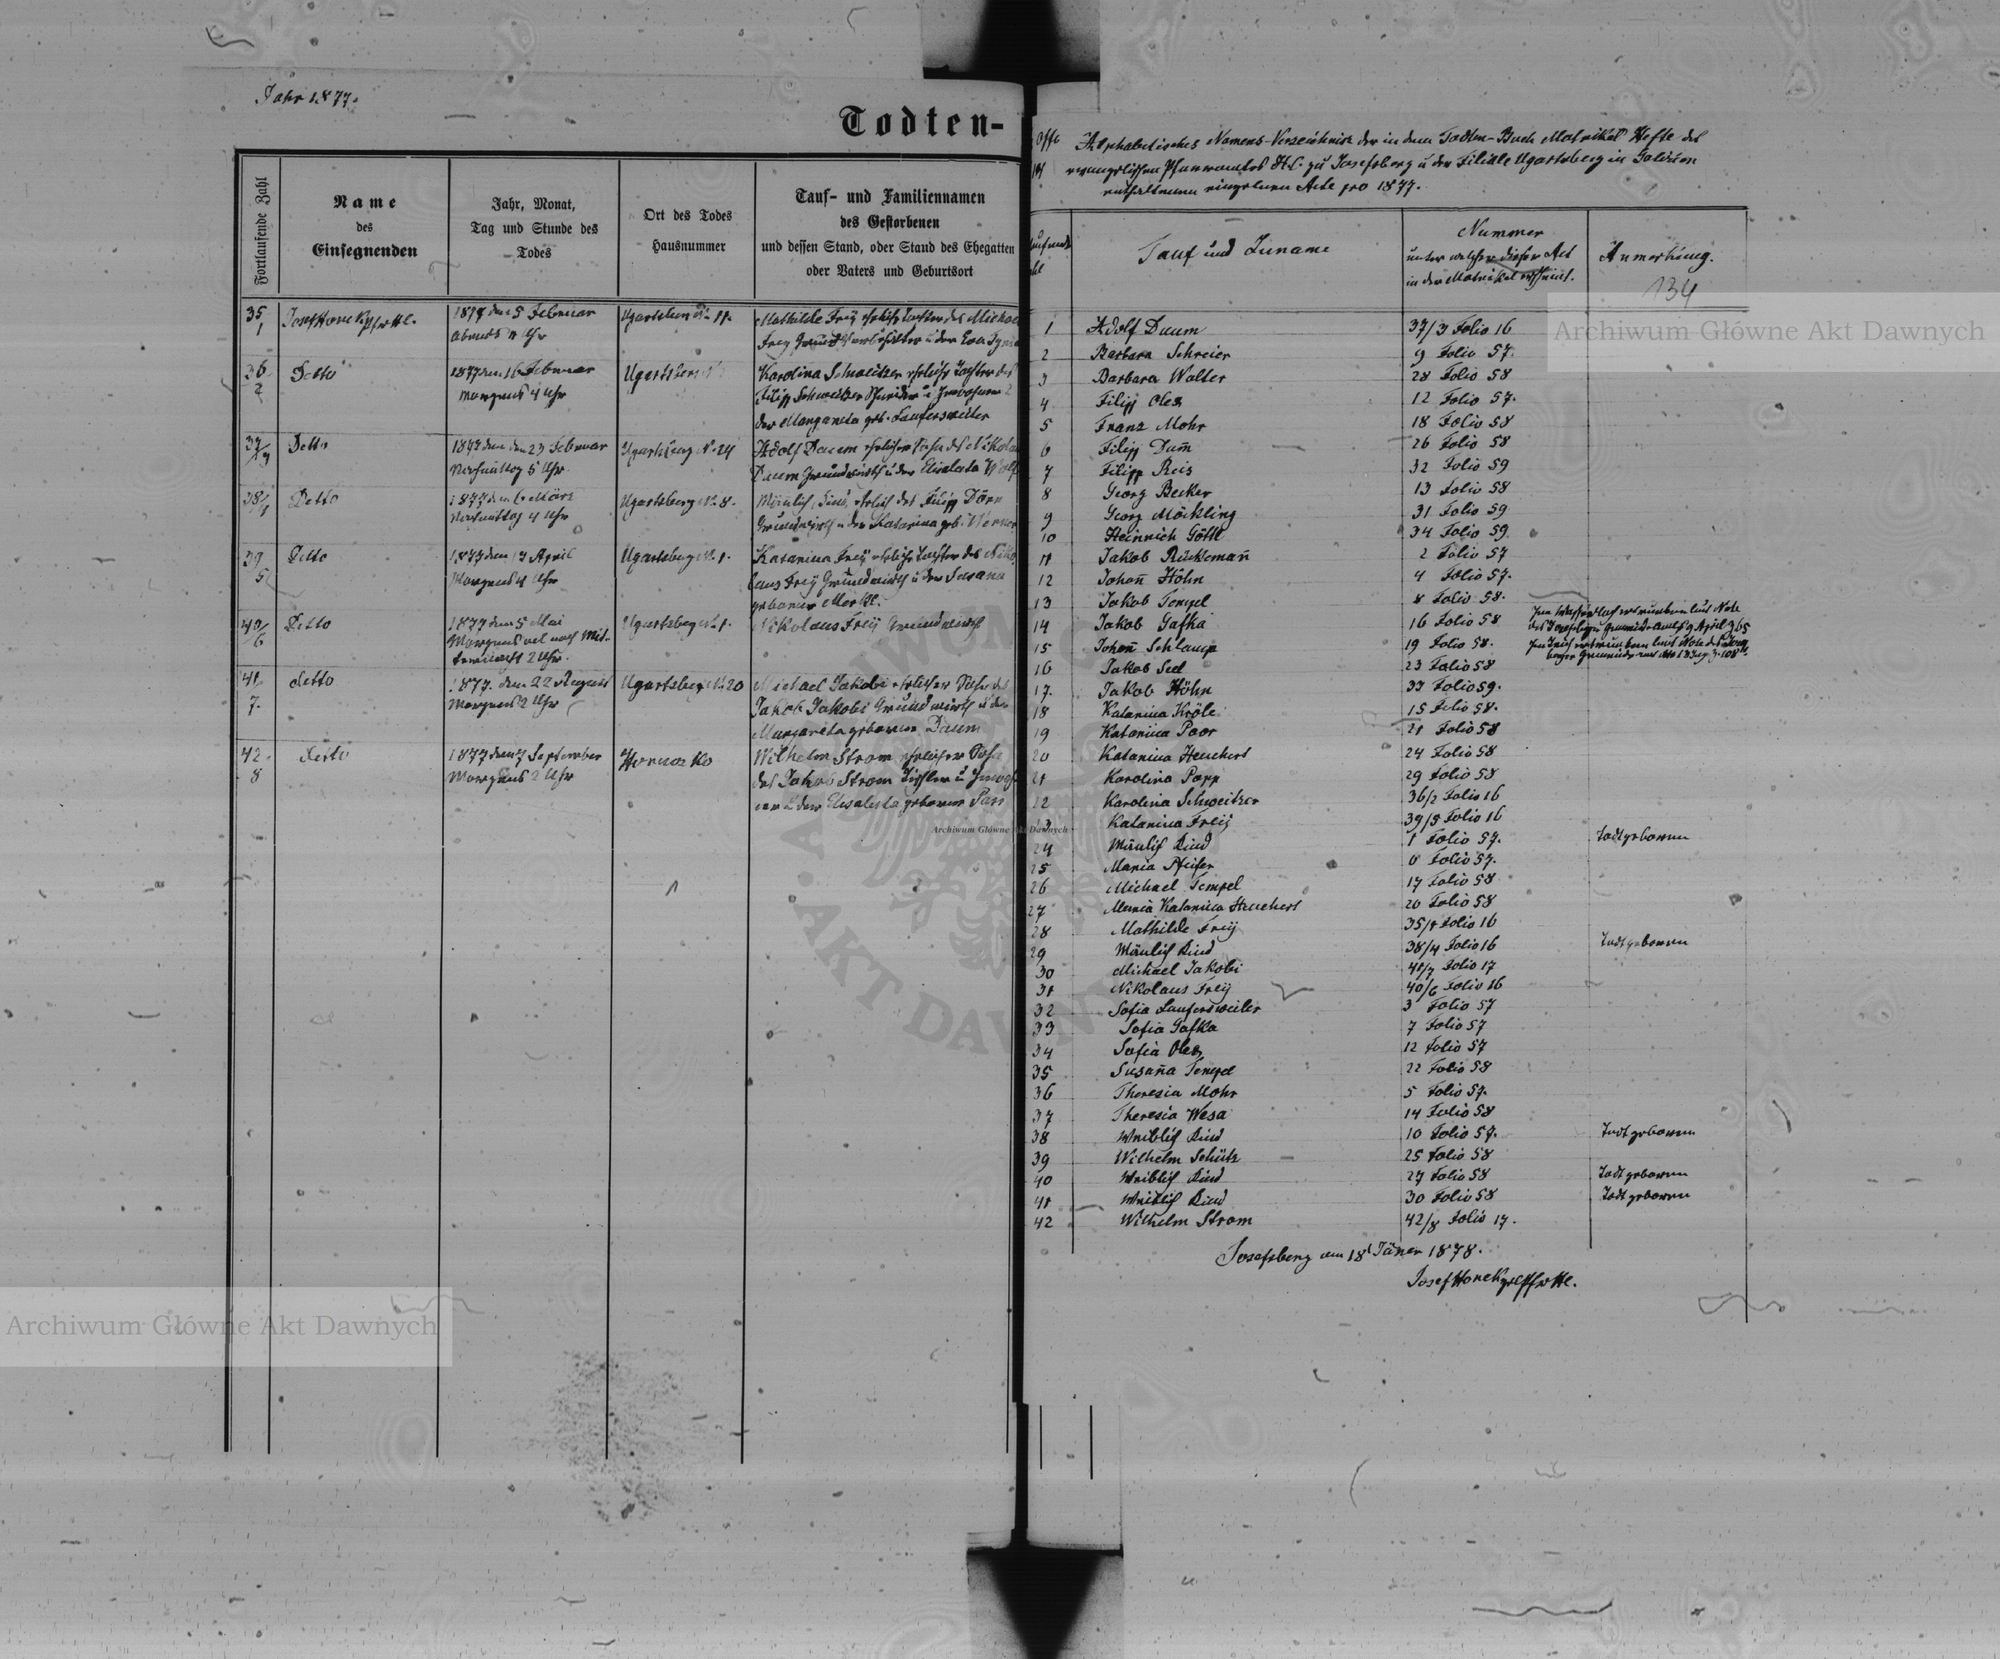 Jahr 1877.
Todten-
Fortlaufende Zahl
Name
des
Einsegnenden
Jahr, Monat,
Tag und Stunde des
Todes
Ort des Todes
Hausnummer
Tauf- und Familiennamen
des Gestorbenen
und dessen Stand, oder Stand des Ehegatten
oder Vaters und Geburtsort
35/1 Josef Honek Pfr. 1877 den 5 Februar Abends Uhr No 11. Mathilde Frey eheliche Tochter des
Frey u der Eva
36/2 Detto 1877 den 16 Februar Morgens 4 Uhr Karolina Schweitzer eheliche Tochter des
Filipp Schweitzer Schneider u
der Margareta geb. Laufersweiler
37/3 Detto 1877 den 23 Februar Nachmittag 5 Uhr Ugartsberg No 24 Adolf Daum ehelicher Sohn des Nikolaus
Daum Grundwirth u der Elisabeta Wolf
38/4 Detto 1877 den 6 März Nachmittag 4 Uhr Ugartsberg No 8. Mänlich Kind, ehelich des Filipp Dörn
Grundwirth u der Katarina geb. Werner
39/5 Detto 1877 den 13 April Morgens 4 Uhr Ugartsberg No 1. Katarina Freÿ eheliche Tochter des Niko
laus Freÿ Grundwirth u der Susana
geborene Merkl.
40/6 Detto 1877 den 5 Mai Morgens nach Mitternacht 2 Uhr. Ugartsberg No 1. Nikolaus Freÿ Grundwirth
41/7. Detto 1877. den 22 August Morgens 2 Uhr Ugartsberg No 20 Michael Jakobi ehelicher Sohn des
Jakob Jakobi Grundwirth u der
Margareta geborene Daum
42/8 Detto 1877 den 7 September Morgens 2 Uhr Wilhelm Strom ehelicher Sohn
des Jakob Strom Tischler u
u der Elisabeta geborene
Alphabetisches Namens-Verzeichniss der in dem Todten-Buch Matrikel Hefte des
evangelischen Pfarramtes H.C. zu Josefsberg u der Filiale Ugartsberg in Galizien
enthaltenen einzelnen Acte pro 1877.
Tauf und Zuname
Nummer
unter welcher dieser Act
in der Matrikel erscheint.
Anmerkung.
134
1 Adolf Daum 37/3 Folio 16
2 Barbara Schreier 9 Folio 57.
3 Barbara Walter 28 Folio 58
4 Filipp Oles 12 Folio 57.
5 Franz Mohr 18 Folio 58
6 Filipp Dam̄ 26 Folio 58
7 Filipp Reis 32 Folio 59
8 Georg Becker 13 Folio 58
9 Georg Möckling 31 Folio 59
10 Heinrich Göttl 34 Folio 59
11 Jakob Rückeman̄ 2 Folio 57
12 Johan̄ Höhn 4 Folio 57.
13 Jakob Tempel 8 Folio 58.
14 Jakob Gafka 16 Folio 58
15 Johan̄ Schlamp 19 Folio 58.
16 Jakob Sed 23 Folio 58
17. Jakob Höhn 33 Folio 59.
18 Katarina Kröle 15 Folio 58.
19 Katarina Poor 21 Folio 58
20 Katarina Heuchert 24 Folio 58
21 Karolina Popp 29 Folio 58
22 Karolina Schweitzer 36/2 Folio 16
23 Katarina Freÿ 39/5 Folio 16
24 Mänlich Kind 1 Folio 57. Todtgeboren
25 Maria Pfeifer 6 Folio 57.
26 Michael Tempel 17 Folio 58
27 Maria Katarina Heuchert 20 Folio 58
28 Mathilde Freÿ 35/1 Folio 16
29 Mänlich Kind 38/4 Folio 16 Todtgeboren
30 Michael Jakobi 41/7 Folio 17
31 Nikolaus Freÿ 40/6 Folio 16
32 Sofia Laufersweiler 3 Folio 57
33 Sofia Gafka 7 Folio 57
34 Sofia Oles 12 Folio 57
35 Susan̄a Tempel 22 Folio 58
36 Theresia Mohr 5 Folio 57.
37 Theresia Wesa 14 Folio 58
38 Weiblich Kind 10 Folio 57. Todtgeboren
39 Wilhelm Schütz 25 Folio 58
40 Weiblich Kind 27 Folio 58 Todtgeboren
41 Weiblich Kind 30 Folio 58 Todtgeboren
42 Wilhelm Strom 42/8 Folio 17.
Josefsberg am 18t Jäner 1878.
Josef Honek
Archiwum Główne Akt Dawnych
Archiwum Główne Akt Dawnych
Archiwum Główne Akt Dawnych